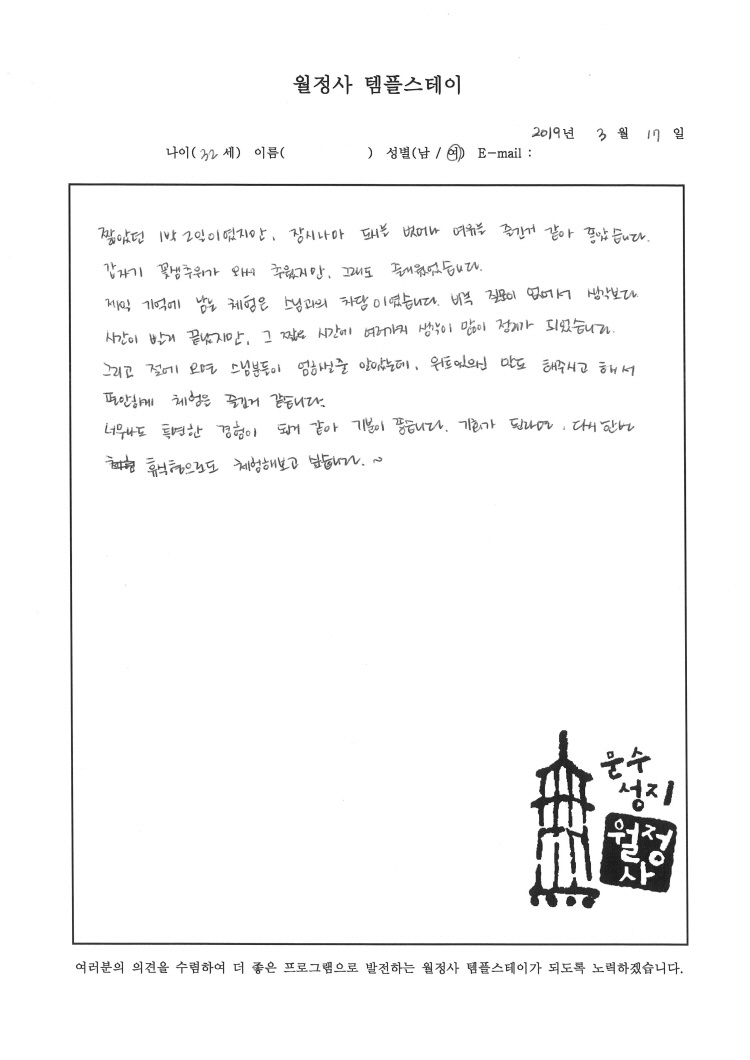 월정사 템플스테이
2019년 3월 17일
나이(32세) 이름( ) 성별(남 / 여) E-mail :
짧았던 1박 2일이였지만, 잠시나마 도시를 벗어나 여유를 즐긴거 같아 좋았습니다.
갑자기 꽃샘추위가 와서 추웠지만, 그래도 즐거웠었습니다.
제일 기억에 남는 체험은 스님과의 차담이였습니다. 비록 질문이 없어서 생각보다
시간이 빨리 끝났지만, 그 짧은 시간에 여러가지 생각이 많이 정리가 되었습니다.
그리고 절에 오면 스님분들이 엄하실줄 알았는데, 위트있으신 말도 해주시고 해서
편안하게 체험을 즐긴거 같습니다.
너무나도 특별한 경험이 된거 같아 기분이 좋습니다. 기회가 된다면, 다시 한번
휴식형으로도 체험해보고 싶습니다. ~
문수
성지
월정
사
여러분의 의견을 수렴하여 더 좋은 프로그램으로 발전하는 월정사 템플스테이가 되도록 노력하겠습니다.